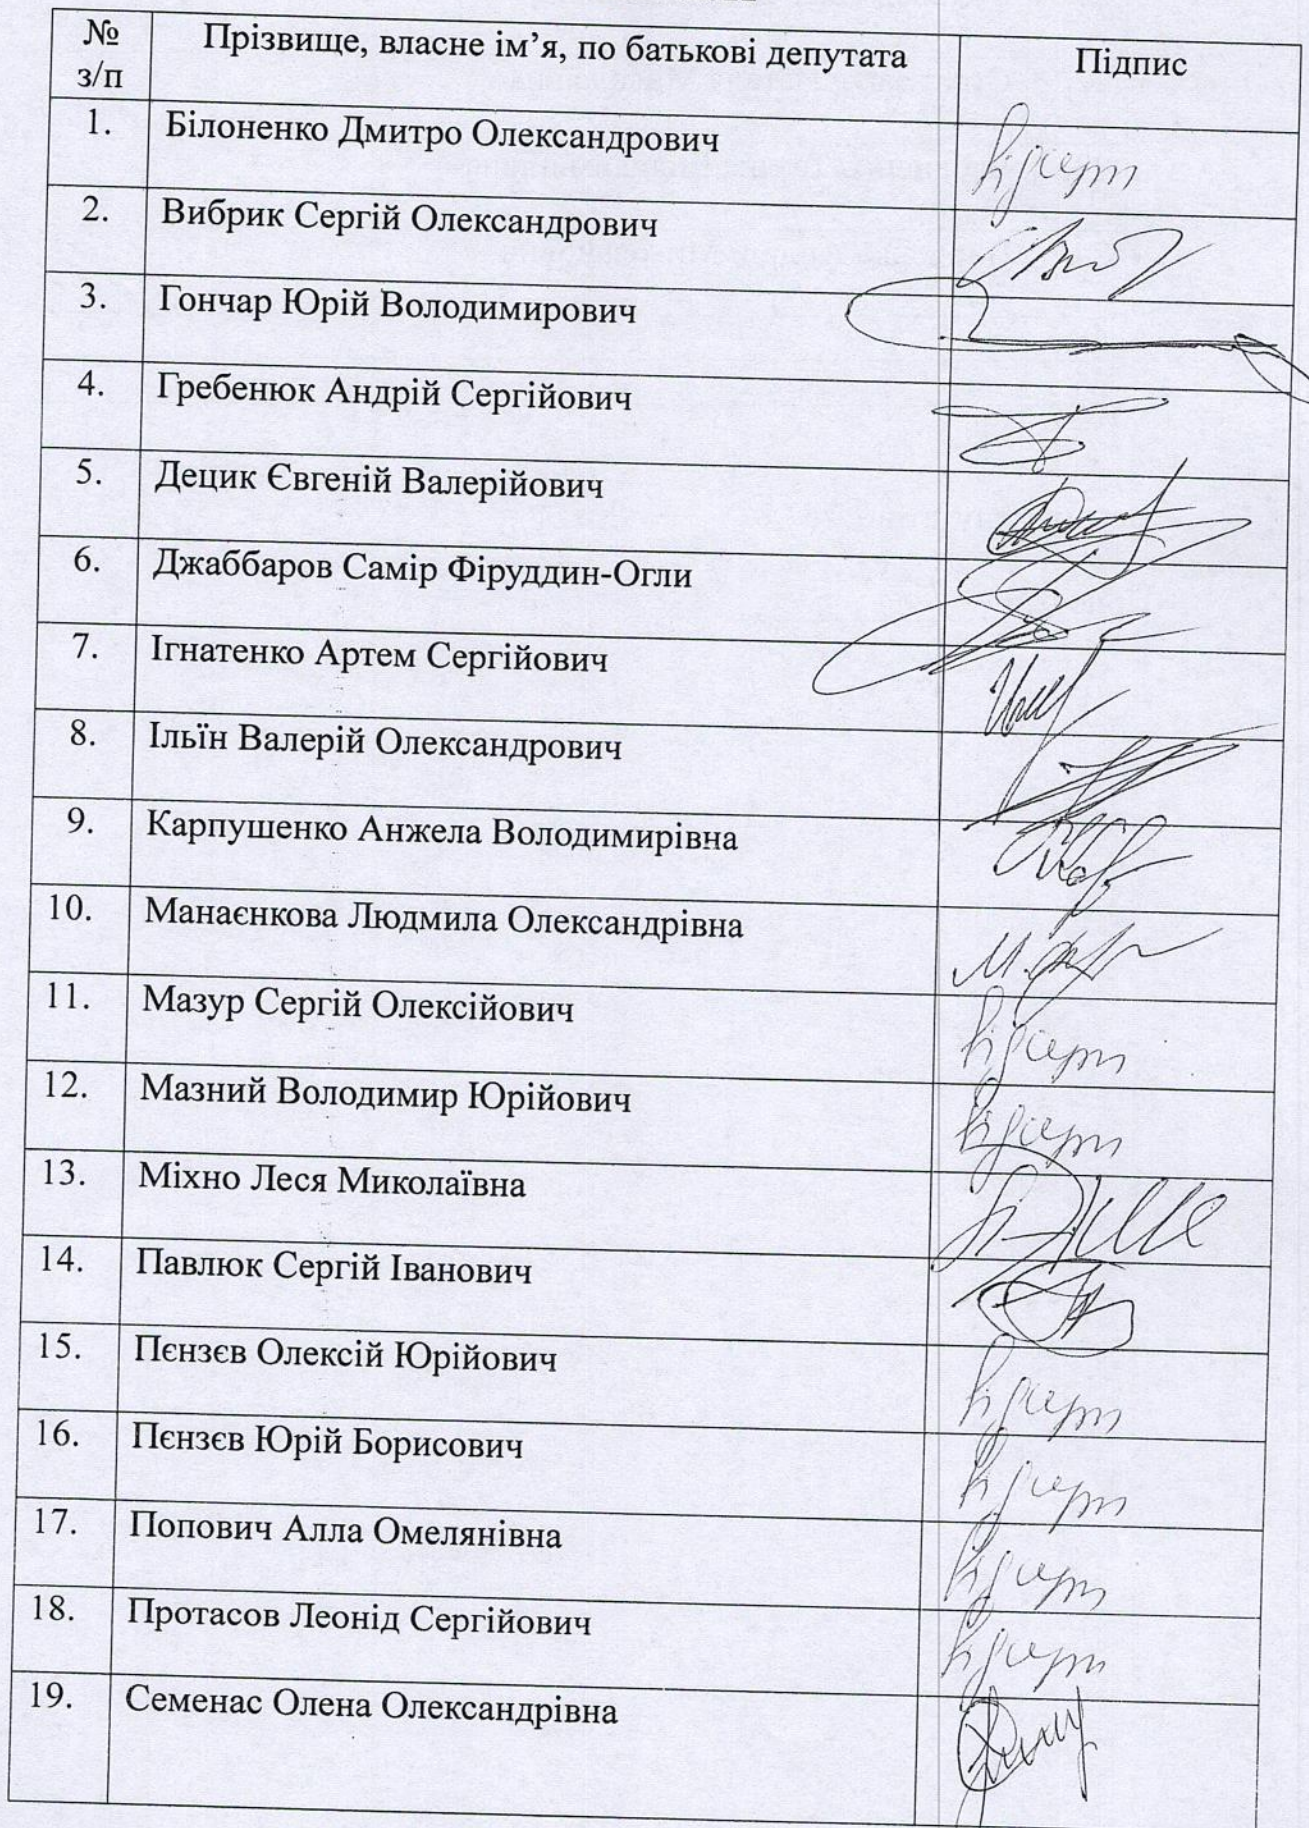 № з/п Прізвище, власне ім’я, по батькові депутата Підпис
1. Білоненко Дмитро Олександрович
2. Вибрик Сергій Олександрович
3. Гончар Юрій Володимирович
4. Гребенюк Андрій Сергійович
5. Децик Євгеній Валерійович
6. Джаббаров Самір Фіруддин-Огли
7. Ігнатенко Артем Сергійович
8. Ільїн Валерій Олександрович
9. Карпушенко Анжела Володимирівна
10. Манаєнкова Людмила Олександрівна
11. Мазур Сергій Олексійович
12. Мазний Володимир Юрійович
13. Міхно Леся Миколаївна
14. Павлюк Сергій Іванович
15. Пєнзєв Олексій Юрійович
16. Пєнзєв Юрій Борисович
17. Попович Алла Омелянівна
18. Протасов Леонід Сергійович
19. Семенас Олена Олександрівна